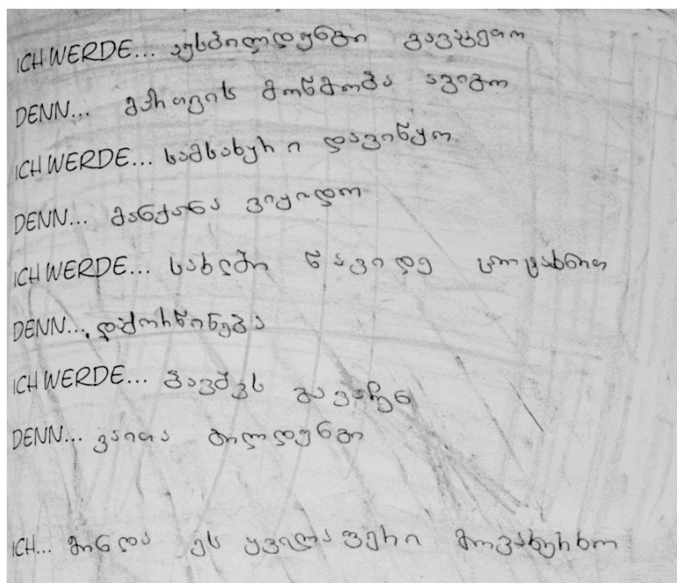 ICH WERDE... აუსბილდუნგი გავაკეთო
DENN... მართვის მოწმობა ავიღო
ICH WERDE... სამსახური დავიწყო
DENN... მანქანა ვიყიდო
ICH WERDE... სახლში წავიდე ცოტახნით
DENN... დაქორწინება
ICH WERDE... ბავშვს გავაჩენ
DENN... ვაითა ბილდუნგი
ICH... მინდა ეს ყველაფერი მოვახერხო